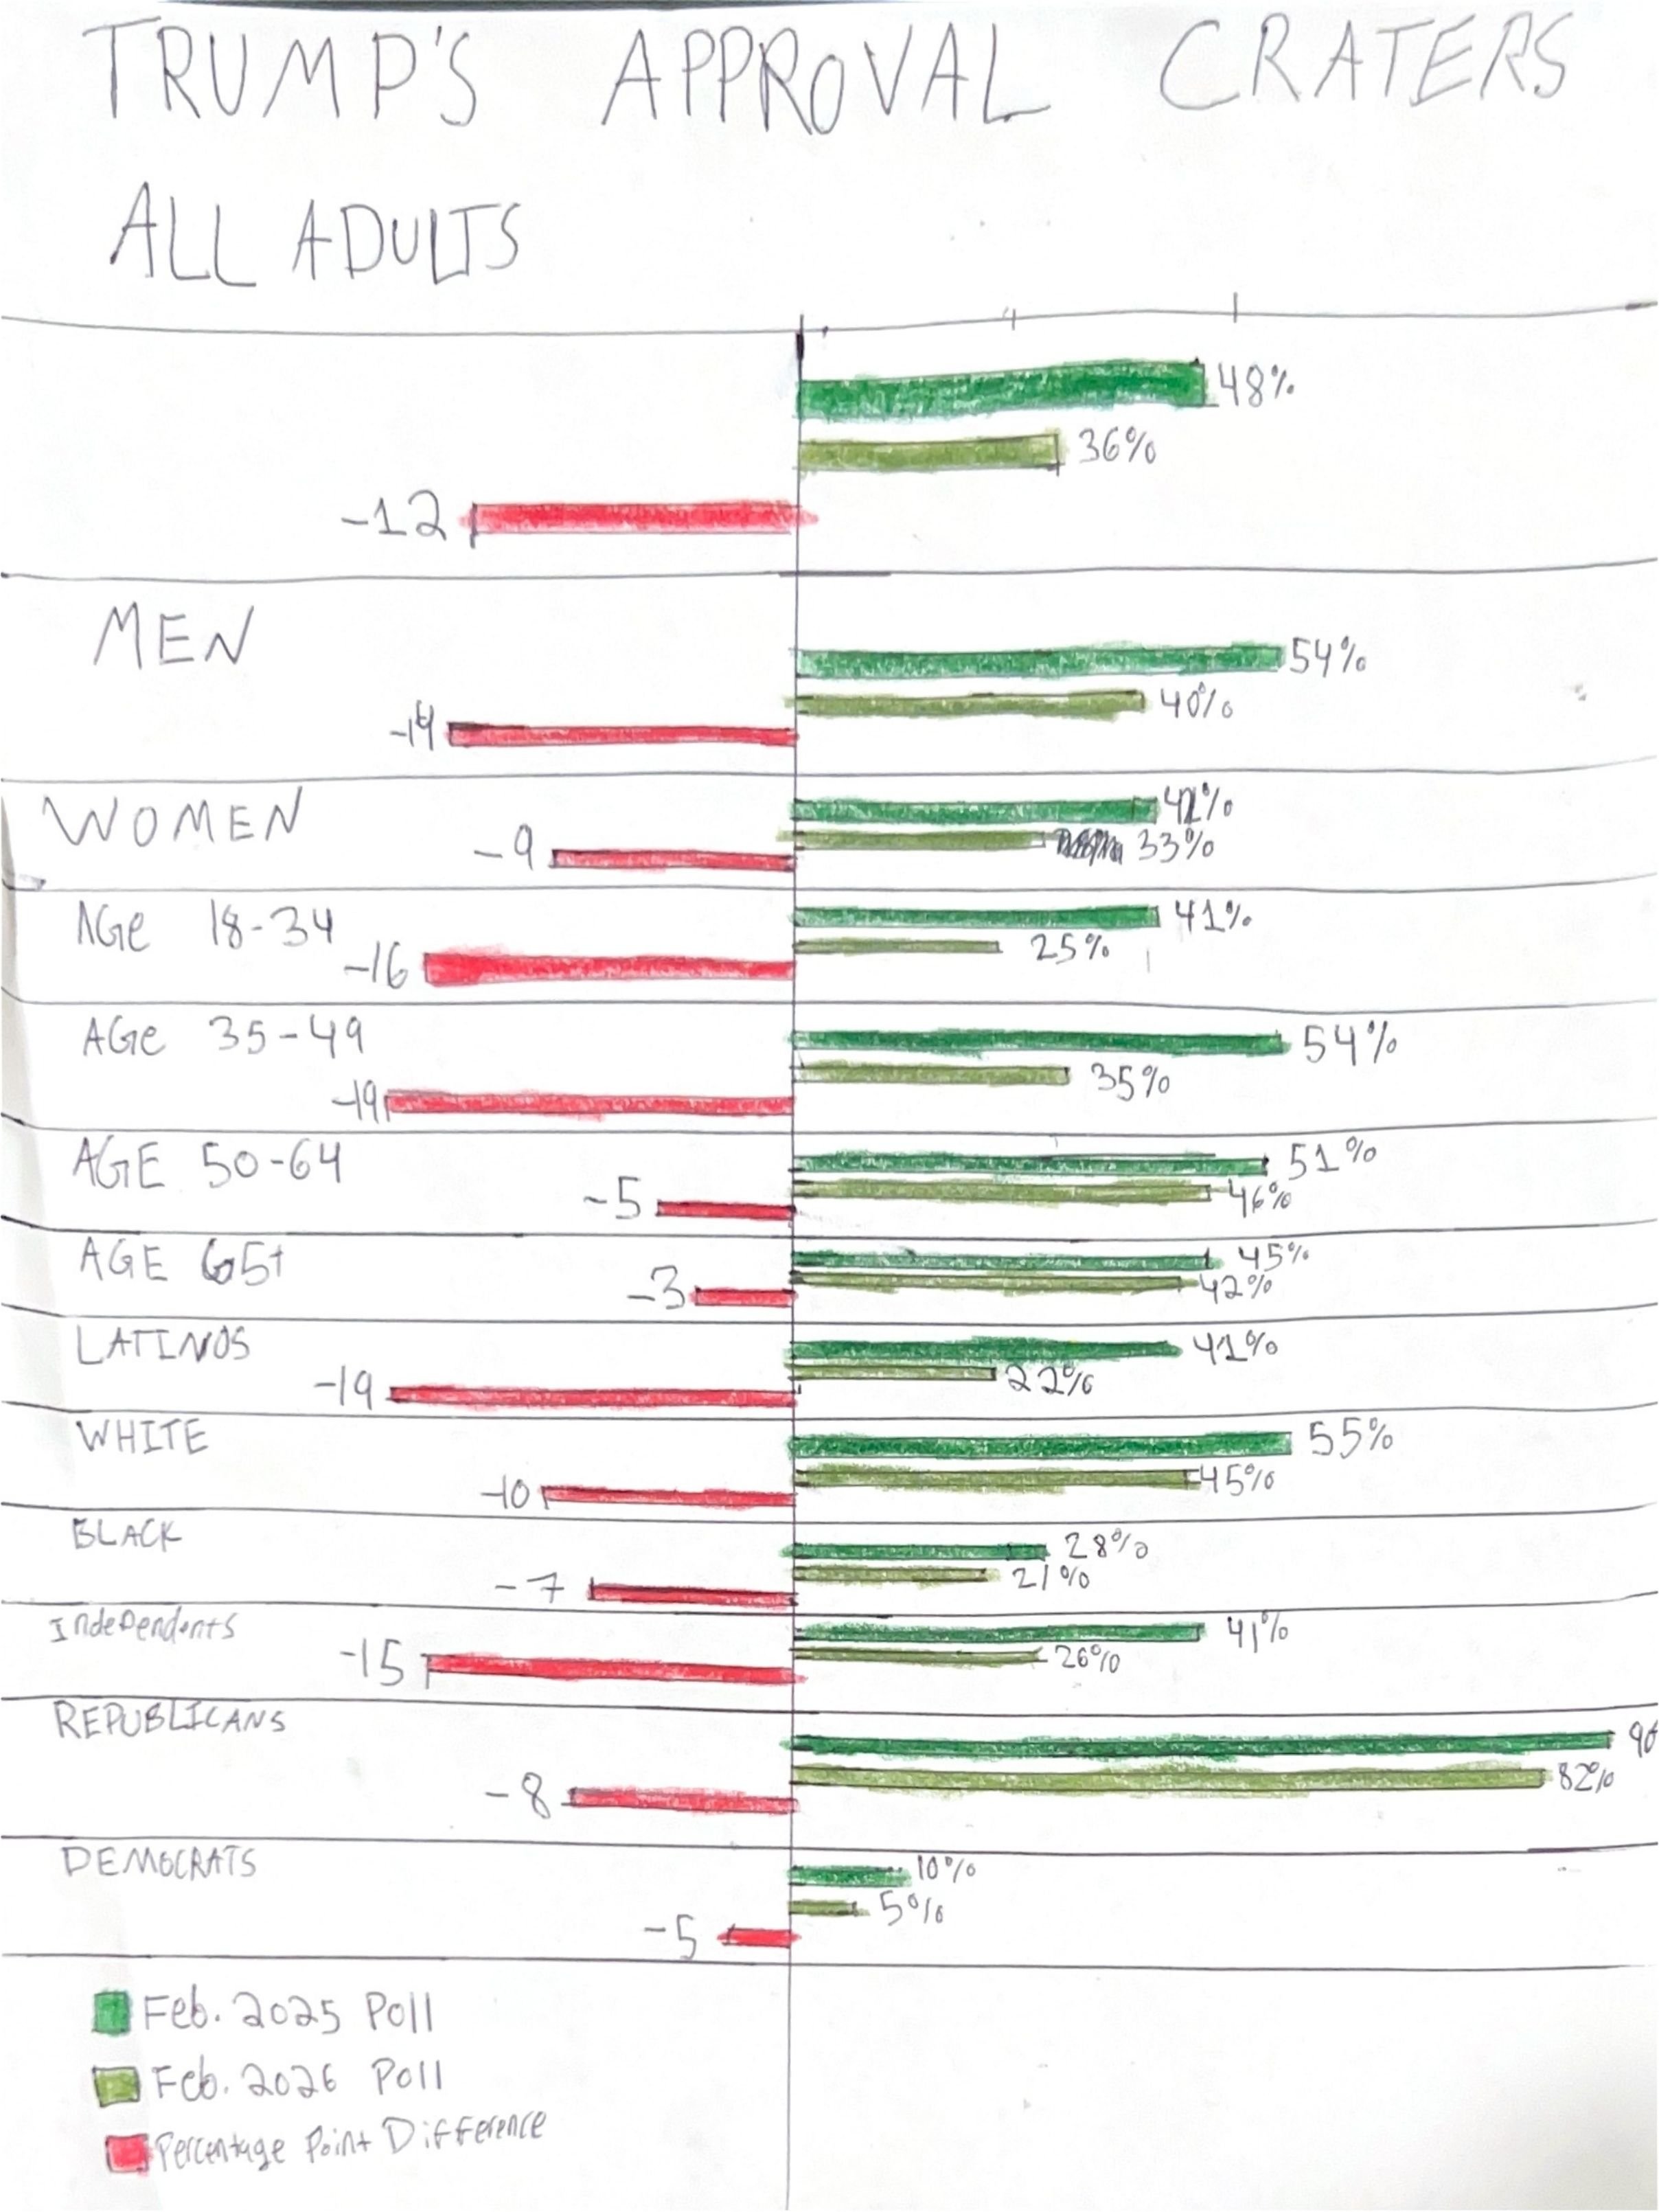 TRUMP'S APPROVAL CRATERS
ALL ADULTS
48%
36%
-12
MEN
54%
40%
-14
WOMEN
42%
33%
-9
AGe 18-34
41%
25%
-16
AGe 35-49
54%
35%
-19
AGE 50-64
51%
46%
-5
AGE 65+
45%
42%
-3
LATINOS
41%
22%
-19
WHITE
55%
45%
-10
BLACK
28%
21%
-7
Independents
41%
26%
-15
REPUBLICANS
82%
-8
DEMOCRATS
10%
5%
-5
Feb. 2025 Poll
Feb. 2026 Poll
Percentage Point Difference